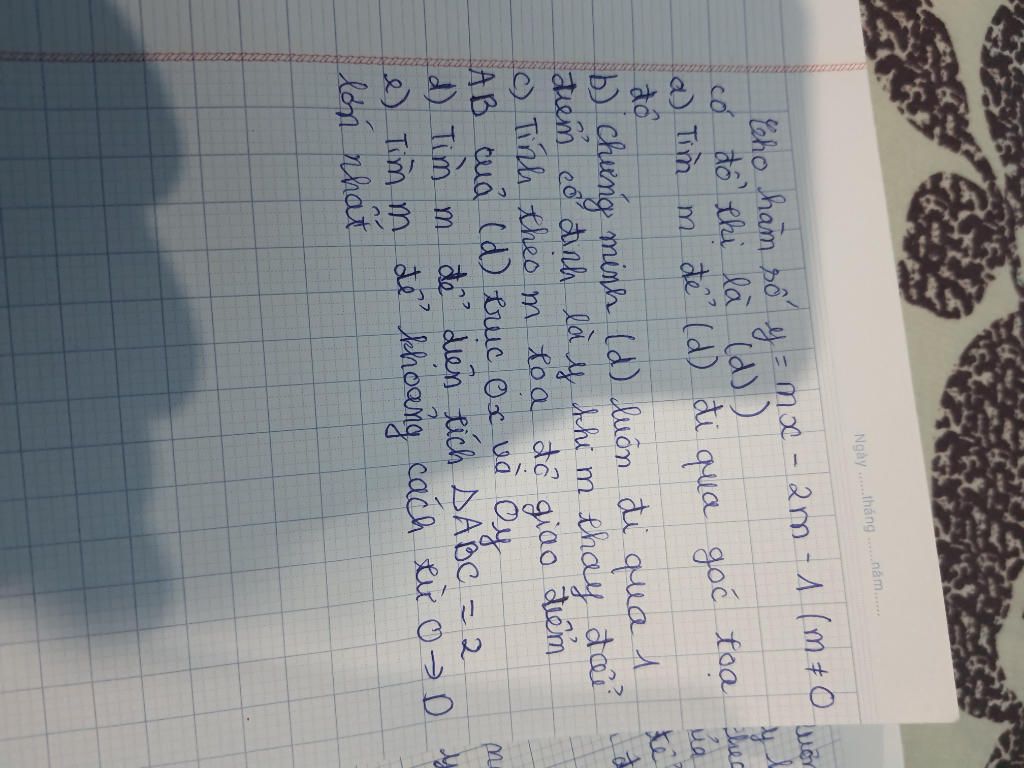 Ngày ......tháng ......năm......
Cho hàm số y = mx - 2m - 1 (m ≠ 0
có đồ thị là (d))
a) Tìm m để (d) đi qua gốc tọa
độ
b) chứng minh (d) luôn đi qua 1
điểm cố định là y khi m thay đổi
c) Tính theo m tọa độ giao điểm
AB của (d) trục Ox và Oy
d) Tìm m để diện tích ΔABC = 2
e) Tìm m để khoảng cách từ O → D
lớn nhất